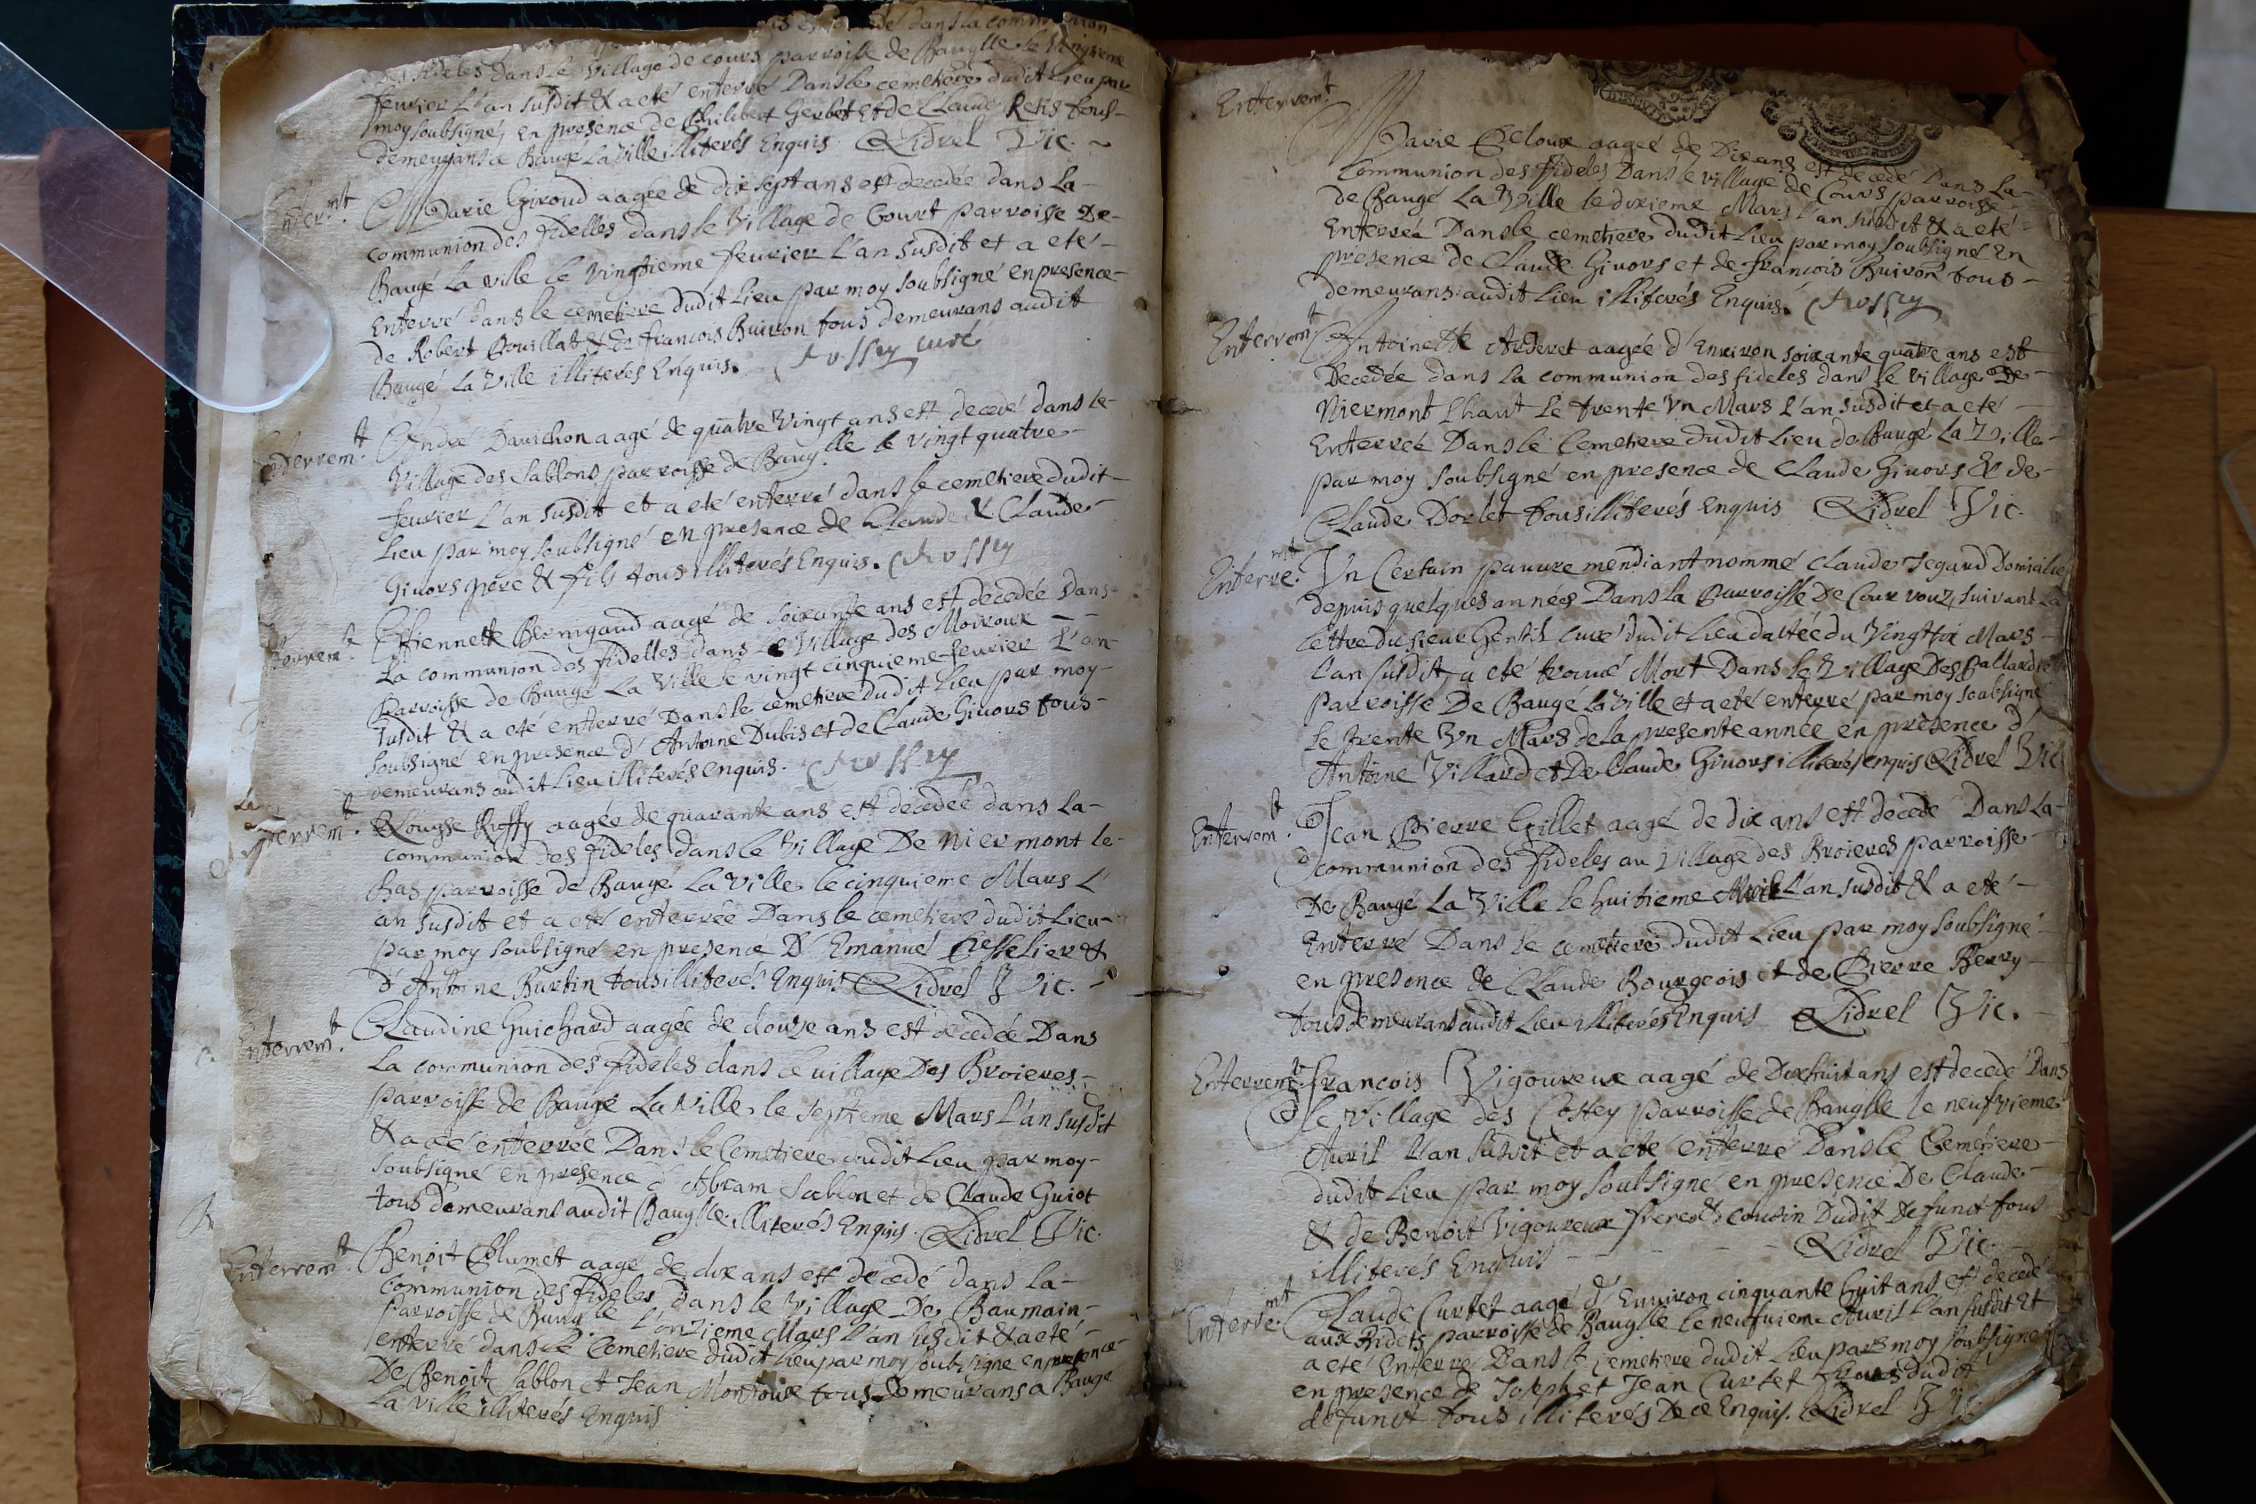 est decedé dans la communion
des fideles dans le Village de cours parroisse de Baugé lle le Vingtieme
feurier L'an susdit & a eté enterré Dans le cemetiere dudit Lieu par
moy soubsigné, en presence de Philibert Gerbet et de Claude Retis tous
demeurans a Baugé La Ville illiterés Enquis. Lidrel Vic.
Enterrmt
Marie Giroud aagée de dix sept ans est decedée dans La
communion des fidelles dans le Village de Court parroisse De
Baugé La ville le Vingtieme feurier L'an susdit et a eté
Enterré dans le cemetiere dudit Lieu par moy soubsigné en presence
de Robert Bouillat & de francois Buiron tous demeurans audit
Baugé La Ville illiterés Enquis. curé
Enterremt.
André Bauchon aagé de quatre Vingt ans est decedé dans le
Village des Sablons parroisse de Baugé lle le Vingt quatre
feurier L'an susdit et a eté enterré dans le cemetiere dudit
Lieu par moy soubsigné en presence de Claude & Claude
Giuors pere & fils tous illiterés Enquis.
Enterremt.
Estiennette Bernigaud aagé de soixante ans est decedée Dans
La communion des fidelles dans le Village des Moiroux
Parroisse de Baugé La Ville le vingt cinquieme feurier L'an
susdit & a eté enterré Dans le cemetiere dudit Lieu par moy
soubsigné en presence d'Antoine Dubis et de Claude Giuors tous
demeurans audit Lieu illiterés enquis.
Enterremt.
Louyse Ruffy aagée de quarante ans est decedée dans La
communion des fideles dans le Village De Niermont le
Bas parroisse de Baugé La Ville le cinquieme Mars L'
an susdit et a eté enterrée Dans le cemetiere dudit Lieu
par moy soubsigné en presence D'Emanuel Tesselier &
d'Antoine Burtin tous illiterés Enquis Lidrel Vic.
Enterremt.
Claudine Guichard aagée de douze ans est decedée Dans
La communion des fideles dans le uillage Des Broieres
parroisse de Baugé La Ville le septieme Mars L'an susdit
& a eté enterrée Dans le Cemetiere audit Lieu par moy
soubsigné en presence d'Abram Sablon et de Claude Guiot
tous demeurans audit Baugé lle illiterés Enquis. Lidrel Vic.
Enterremt.
Benoit Plumet aagé de dix ans est decedé dans la
communion des fideles dans le Village De Baumain
parroisse de Baugé lle L'onzieme Mars L'an susdit & a eté
enterré dans le Cemetiere dudit Lieu par moy soubsigné en presence
De Benoit Sablon et Jean Montoux tous demeurans a Baugé
La Ville illiterés Enquis
Enterremt
Marie Peloux aagée de Dix ans est decedé Dans La
Communion des fideles Dans le village de Cours parroisse
de Baugé La Ville le dixieme Mars L'an susdit & a eté
Enterrée Dans le cemetiere dudit Lieu par moy soubsigné En
presence de Claude Giuors et de francois Buiron tous
demeurans audit Lieu illiterés Enquis.
Enterremt
Antoinette Arderet aagée d'Enuiron soixante quatre ans est
Decedée dans La communion des fideles dans le village De
Niermont L'haut le trente Vn Mars L'an susdit et a eté
Enterrée Dans le Cemetiere dudit Lieu de Baugé La Ville
par moy soubsigné en presence de Claude Giuors & de
Claude Dorlet tous illiterés Enquis Lidrel Vic.
Enterremt.
Vn Certain pauure mendiant nommé Claude Segaud Domicilié
depuis quelques années Dans la Parroisse De Couruouz, suivant La
Lettre du sieur Gentil curé dudit Lieu dattée du Vingt six Mars
L'an susdit, a eté trouué Mort Dans le Village Des Callards
parroisse De Baugé la Ville et a eté enterré par moy soubsigné
Le trente Vn Mars de la presente année en presence d'
Antoine Villard et De Claude Giuors illiterés enquis Lidrel Vic.
Enterremt.
Jean Pierre Gillet aagé de dix ans est decedé Dans La
communion des fideles au Village des Broieres parroisse
De Baugé La Ville le huitieme Avril L'an susdit & a eté
Enterré Dans le cemetiere dudit Lieu par moy soubsigné
en presence de Claude Bourgeois et de Pierre Berry
tous demeurans audit Lieu illiterés Enquis Lidrel Vic.
Enterremt.
francois Vigoureux aagé de Dixhuit ans est decedé Dans
le Village des Costey parroisse de Baugé lle le neufvieme
Auril L'an susdit et a eté enterré Dans le Cemetiere
dudit Lieu par moy soubsigné en presence De Claude
& de Benoit Vigoureux freres & cousin Dudit Defunct tous
illiterés Enquis Lidrel Vic.
Enterremt.
Claude Curtet aagé d'Enuiron cinquante huit ans est decedé
aux Bidets parroisse de Baugé lle le neufuieme Auril L'an susdit Et
a eté Enterré Dans le Cemetiere dudit Lieu par moy soubsigné
en presence de Joseph et Jean Curtet freres dudit
defunct tous illiterés De ce Enquis. Lidrel Vic.